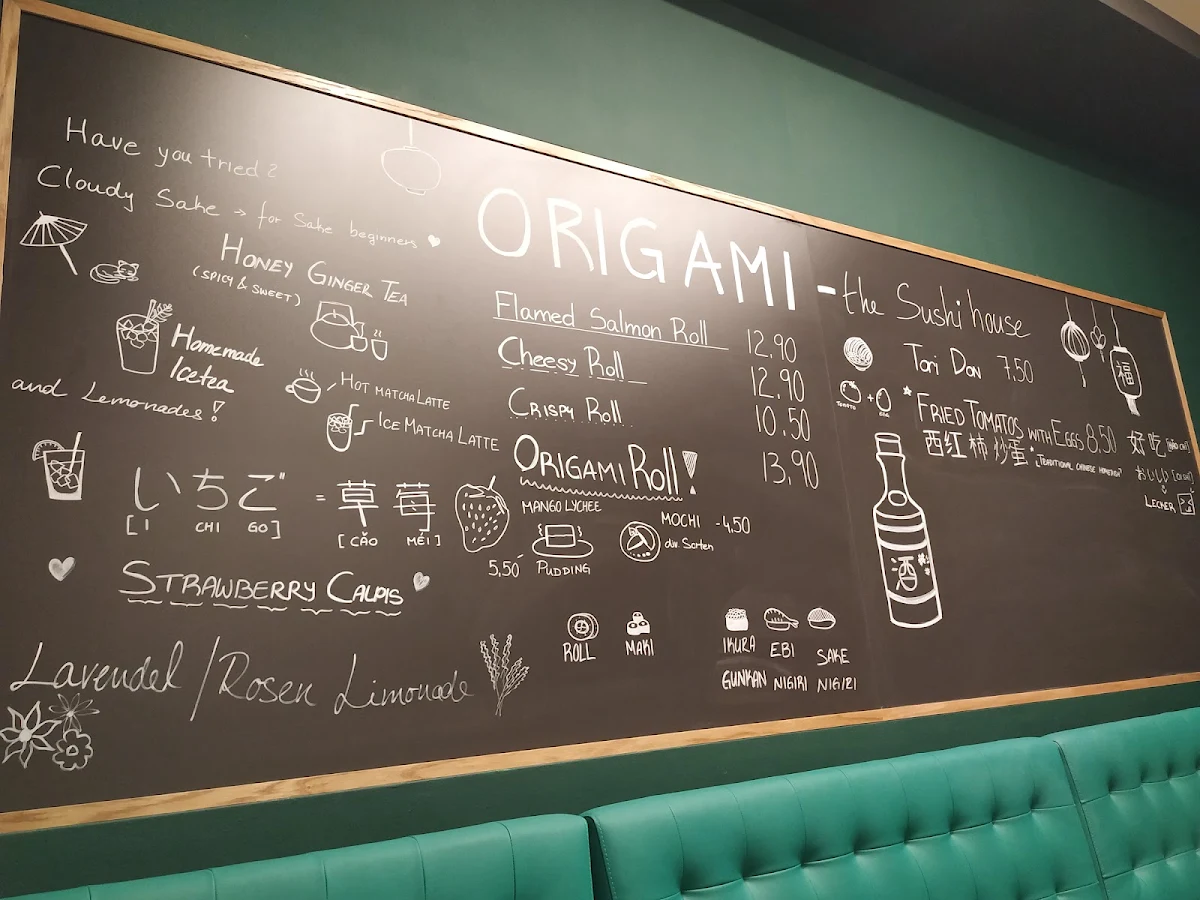 Have you tried?
Cloudy Sake → for Sake beginners ♥
HONEY GINGER TEA
(SPICY & SWEET)
Homemade
Icetea
and Lemonades!
HOT MATCHA LATTE
ICE MATCHA LATTE
いちご = 草莓
[I CHI GO] [CǍO MÉI]
STRAWBERRY CALPIS
Lavendel / Rosen Limonade
ORIGAMI - the Sushi house
Flamed Salmon Roll 12,90
Cheesy Roll 12,90
CRISPY Roll 10,50
ORIGAMI Roll! 13,90
MANGO LYCHEE
5,50 PUDDING
MOCHI - 4,50
div. Sorten
ROLL
MAKI
IKURA EBI SAKE
GUNKAN NIGIRI NIGIRI
Tori Don 7,50
TOMATO + EGG
* FRIED TOMATOS WITH EGGS 8,50
西红柿炒蛋
* TRADITIONAL CHINESE HOMEMADE
好吃 [HǍO CHĪ]
おいしい [OISHII]
LECKER
福
酒